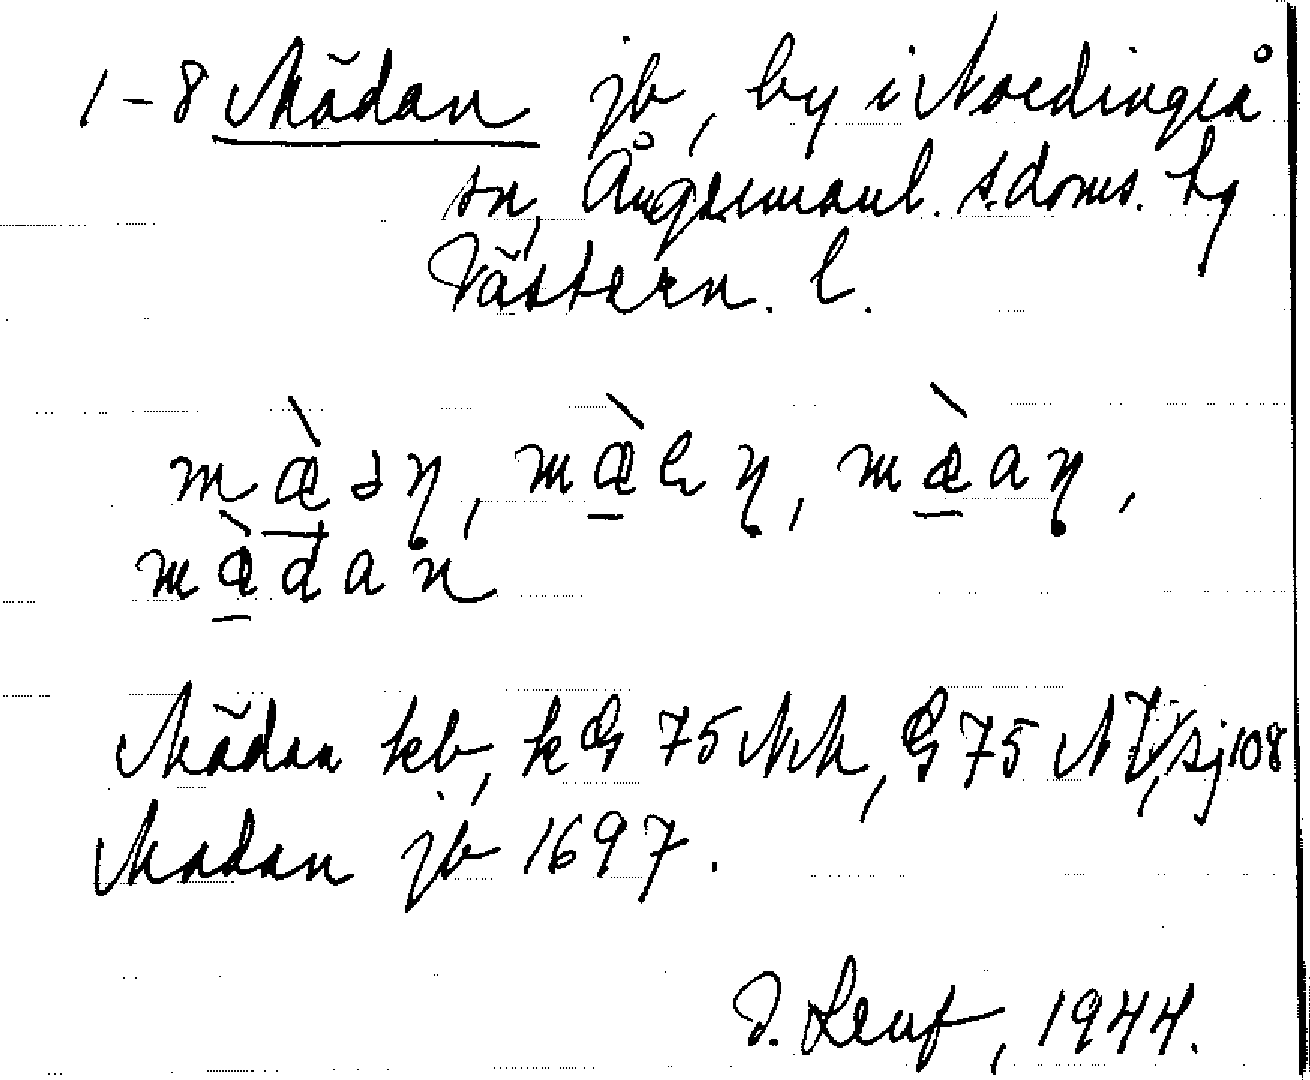 1-8 Mädan jb, by i Nordingrå
sn, Ångermanl. s.doms. lg
Västern. l.
mæ̀ǝn̥, mæ̀ɛn̥, mæ̀an̥,
mæ̀dan
Mädan kb, kG 75 NM, G 75 NV, sj 108
Madan jb 1697.
D. Leuf, 1944.